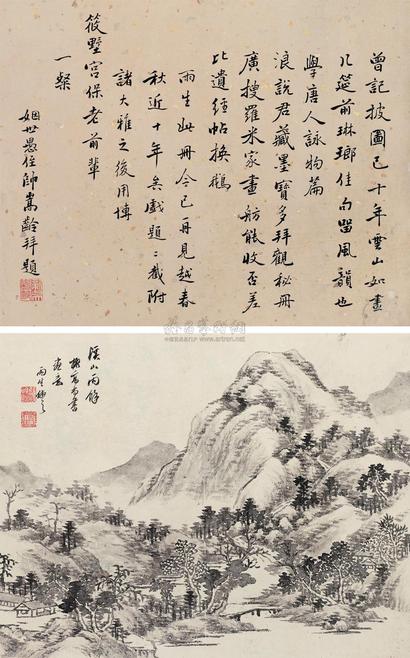 曾記披圖已十年雲山如畫
几筵前琳瑯佳句留風韻也
學唐人詠物篇
浪說君藏墨寶多拜觀秘冊
廣搜羅米家畫舫能收否差
比遺經帖換鵝
雨生此冊今已再見越春
秋近十年矣戲題二截附
諸大雅之後用博
筱墅宮保老前輩
一粲
姻世愚侄帥嵩齡拜題
溪山雨餘
雨生
www.artron.net